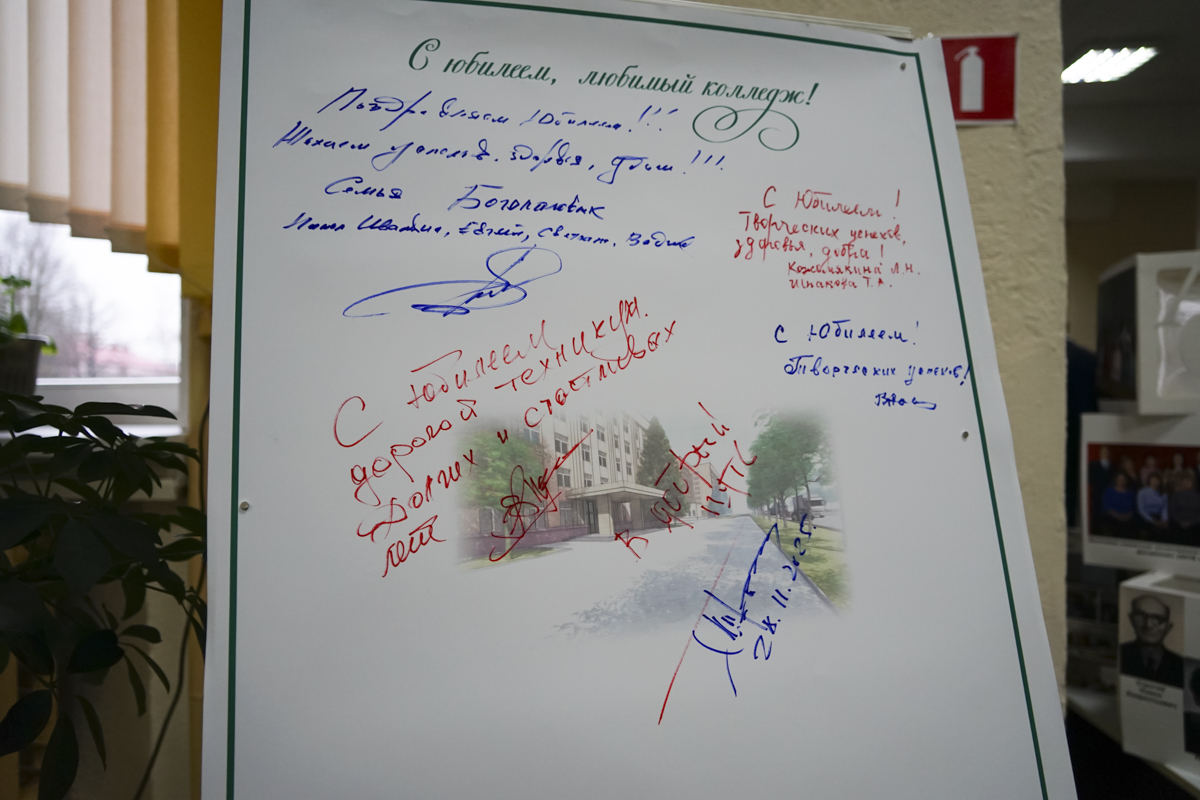 С юбилеем, любимый колледж!
Поздравляем Юбилеем!!!
Желаем успехов, здоровья, !!!
Семья
Иванна, Евгений, Светлан, Вадим
С Юбилеем!
Творческих успехов,
здоровья, добра!
Кожемякина Л.Н.
Ишакова Т.А.
С Юбилеем!
Творческих успехов!
С юбилеем
дорогой техникум.
Долгих и счастливых
лет
В добрый
путь
28.11.2025.